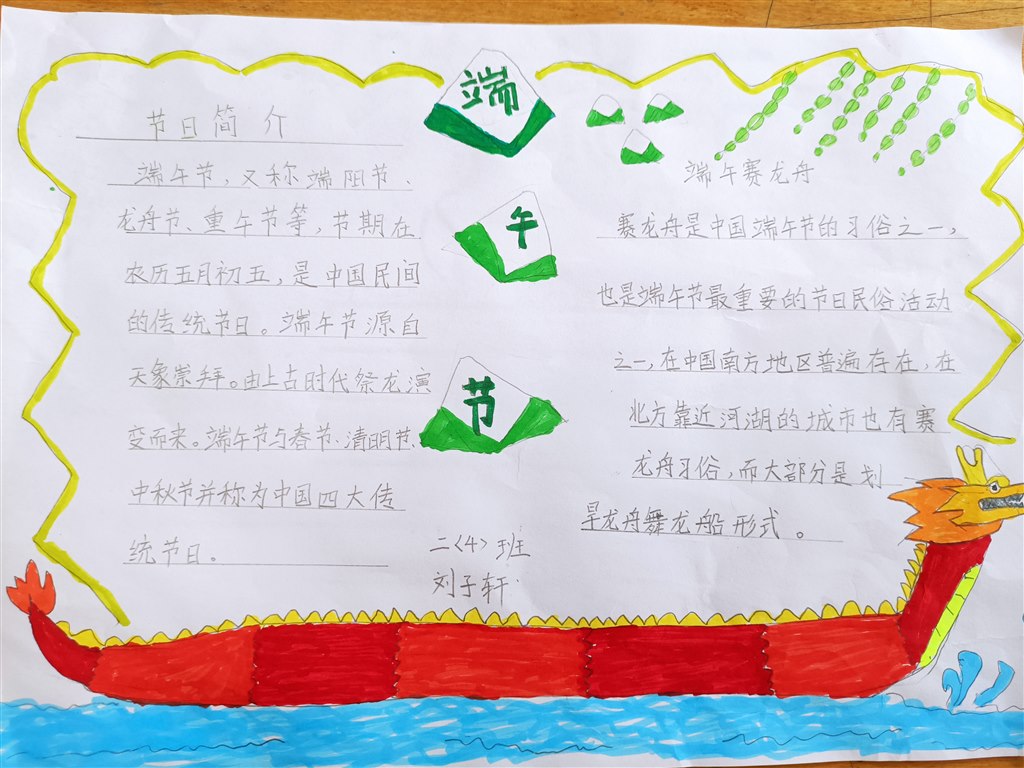 端
午
节
节日简介
端午节，又称端阳节、
龙舟节、重午节等，节期在
农历五月初五，是中国民间
的传统节日。端午节源自
天象崇拜。由上古时代祭龙演
变而来。端午节与春节、清明节、
中秋节并称为中国四大传
统节日。
二〈4〉班
刘子轩
端午赛龙舟
赛龙舟是中国端午节的习俗之一，
也是端午节最重要的节日民俗活动
之一，在中国南方地区普遍存在，在
北方靠近河湖的城市也有赛
龙舟习俗，而大部分是划
旱龙舟舞龙船形式。